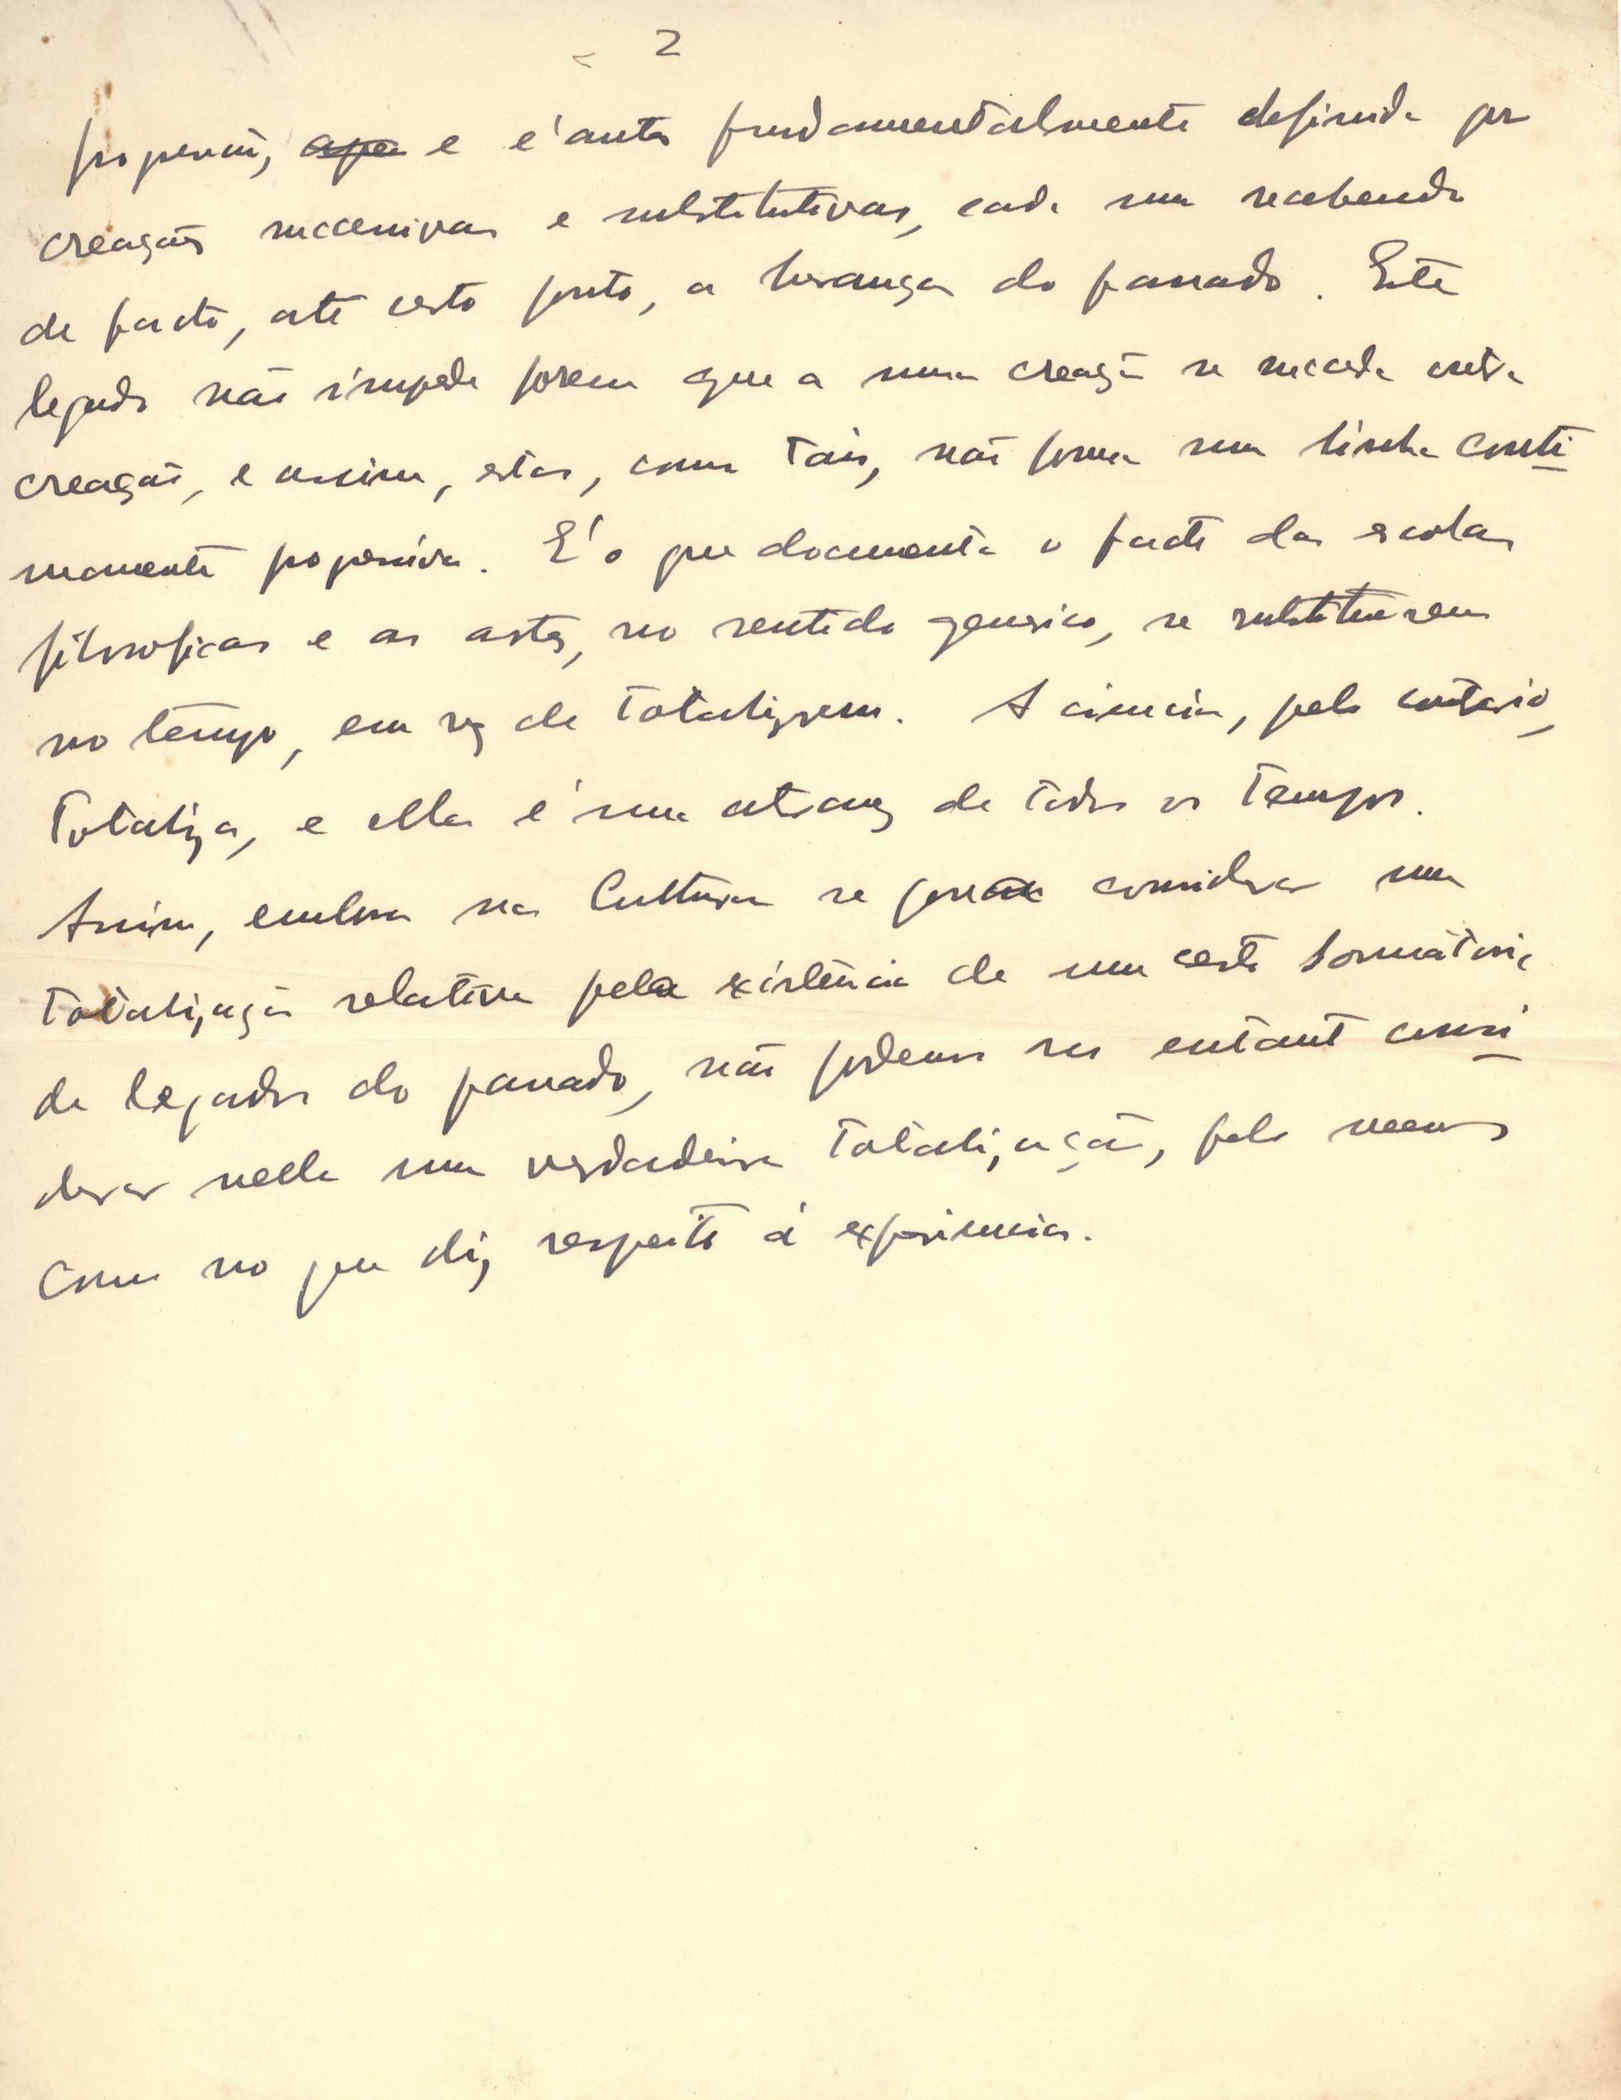 2
progressão, e é antes fundamentalmente definida por
creações successivas e substitutivas, cada uma recebendo
de facto, até certo ponto, a herança do passado. Este
legado não impede porem que a uma creação se succeda outra
creação, e assim, estas, como tais, não forma uma linha conti
nuamente progressiva. E' o que documenta o facto das escolas
filosoficas e as artes, no sentido generico, se substituirem
no tempo, em vez de totalizarem. A ciencia, pelo contrario,
totaliza, e ella é uma atravez de todos os tempos.
Assim, embora na Cultura se possa considerar uma
totalização relativa pela existência de um certo somátorio
de legados do passado, não podemos no entanto consi
derar nella uma verdadeira totalização, pelo menos
como no que diz respeito á experiencia.